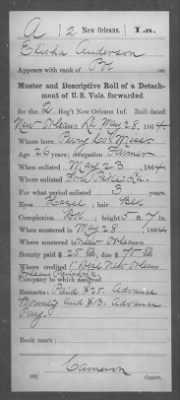 A | 12 | New Orleans. | La.
Elisha Anderson
Appears with rank of Pvt on
Muster and Descriptive Roll of a Detach-
ment of U. S. Vols. forwarded
for the 2. Reg't New Orleans Inf. Roll dated
New Orleans La May 28, 1864
Where born Perry Co Miss
Age 26 years; occupation Farmer
When enlisted May 23, 1864
Where enlisted La.
For what period enlisted 3 years.
Eyes Hazel; hair Blk
Complexion Dk; height 5 ft. 7 in.
When mustered in May 28, 1864
Where mustered in New Orleans
Bounty paid $ 25 00; due $ 75 00
Where credited New Orleans
Company to which assigned
Remarks: Paid $25. Advance
Bounty and $13. Advance
Pay
Book mark:
Cameron
Copyist.